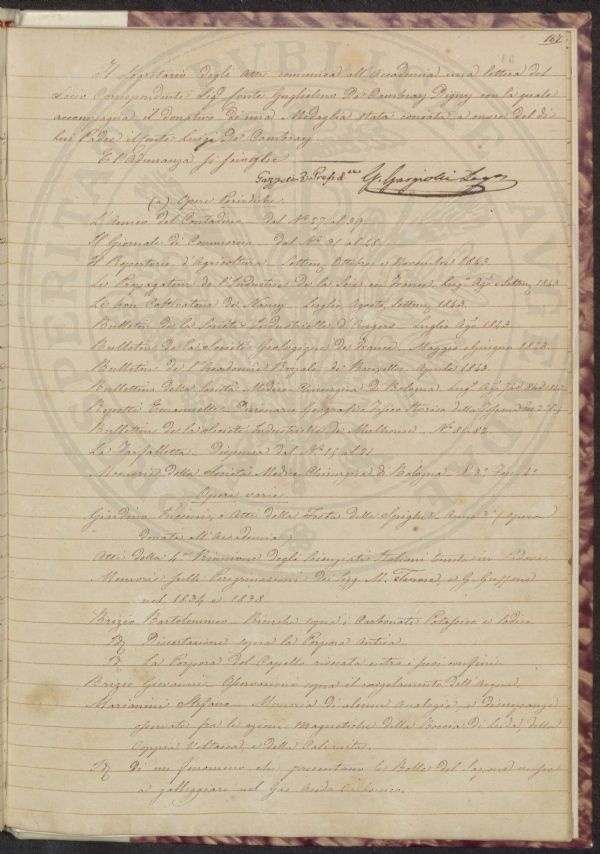 162
Il Segretario degli Atti comunica all'Accademia una lettera del
Socio Corrispondente Sigr Conte Guglielmo De Cambray Digny con la quale
accompagna il donativo di una Medaglia stata coniata a onore del di
lui Padre il Conte Luigi De Cambray
E l'Adunanza si sciolse
Gazzeri Presid.te G. Gargiolli Segr
(a) Opere Periodiche
L'Amico del Contadino dal No 27 al 39
Il Giornale di Commercio dal No 31 al 48
Il Repertorio d'Agricoltura Settem. Ottobre e Novembre 1843
Le Propagateur de l'Industrie de la Soie en France, Lugo Ago e Settem. 1843
Le bon Cultivateur de Nancy Luglio, Agosto, Settem. 1843.
Bulletin de la Société Industrielle d'Angers Luglio Ago 1843
Bulletin de la Société Geologique de France. Maggio e Giugno 1843
Bulletin de l'Academie Royale de Bruxelles. Aprile 1843
Bullettino della Società Medico Chirurgica di Bologna Lugo Ago
Repetti Emanuelle Dizionario Geografico Fisico Storico della Toscana
Bulletin de la Société Industrielle de Mulhouse No 81 82
La Farfalletta Dispense dal No 15 al 21
Memorie della Società Medico Chirurgica di Bologna V. 3o Fasc. 1o
Opere varie
Giardino Puccini, e Atti della Festa delle Spighe. Anno 3o (Opera
donata all'Accademia)
Atti della 4a Riunione degli Scienziati Italiani tenuta in Padova
Memorie sulle Peregrinazioni dei Sigg. M. e G.
nel 1834 e 1838
Brizio Bartolommeo Ricerche sopra i Carbonati Potassico e Sodico
Id. Dissertazione sopra la Porpora Antica.
Id. La Porpora del Capello rivocata entro i suoi confini
Brizio Giovanni Osservazioni sopra il congelamento dell'Acqua
Marianini Stefano Memoria di alcune Analogie e discrepanze
osservate fra le azioni Magnetiche della Boccia di Leida, della
Coppia Voltaica e della Calamita.
Id. Di un fenomeno che presentano le Bolle del Sapone messe
a galleggiare nel Gas Acido Carbonico.